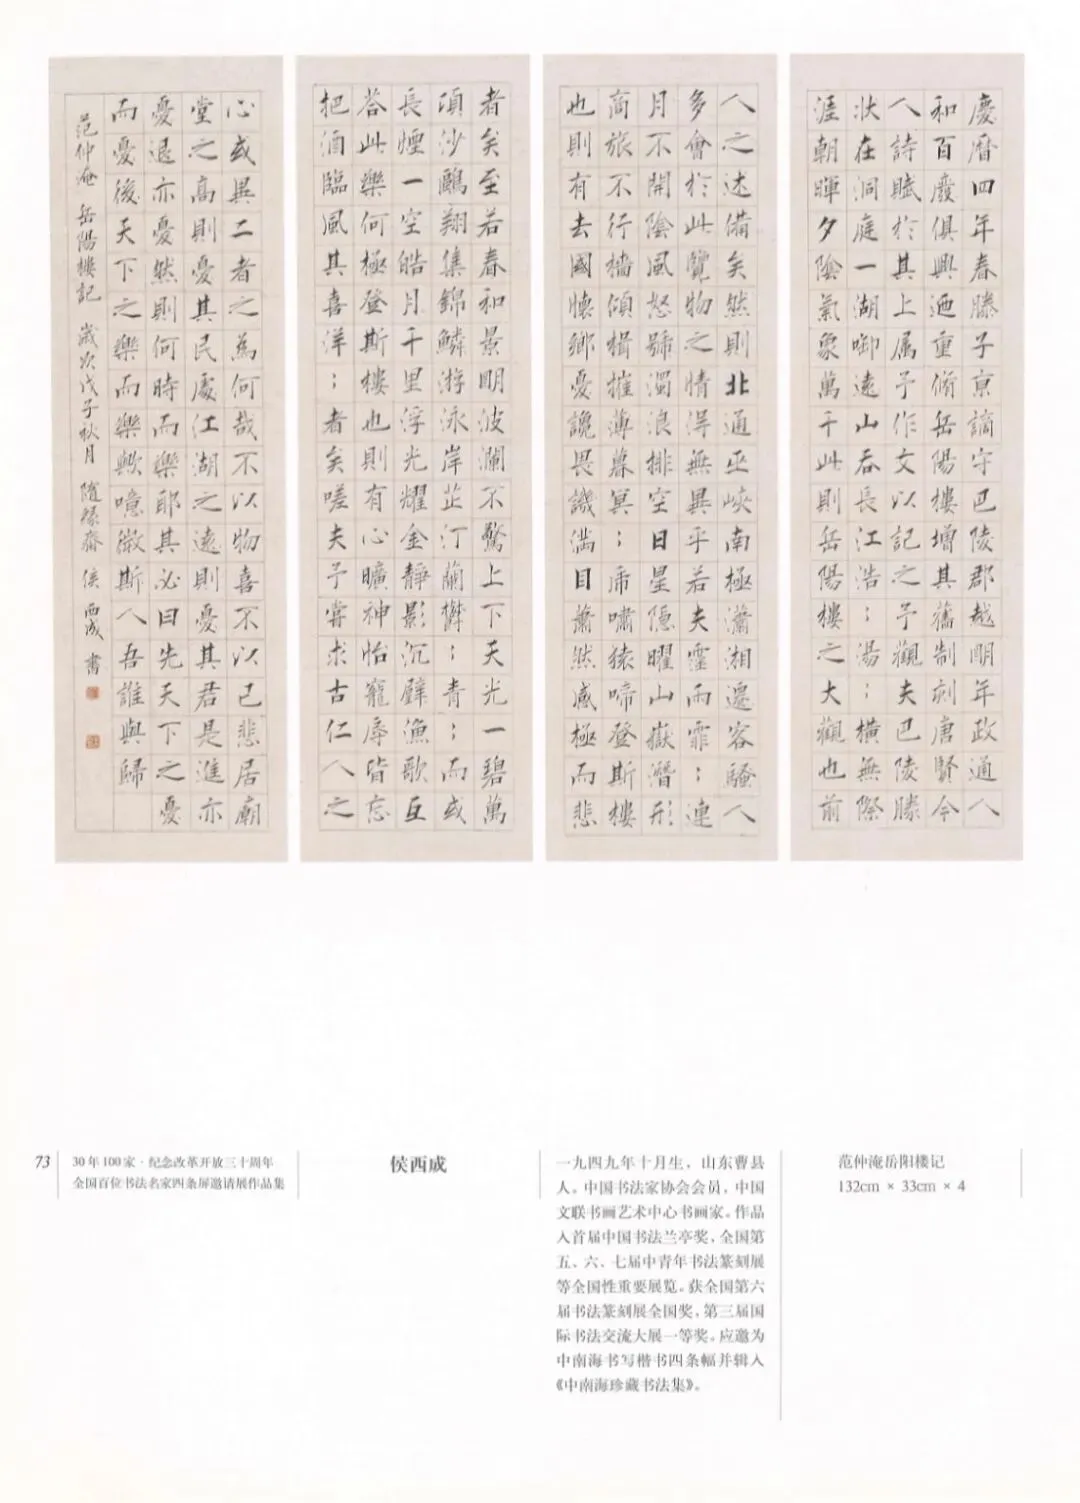 慶曆四年春滕子京謫守巴陵郡越明年政通人
和百廢俱興迺重脩岳陽樓增其舊制刻唐賢今
人詩賦於其上属予作文以記之予觀夫巴陵勝
狀在洞庭一湖啣遠山吞長江浩〻湯〻橫無際
涯朝暉夕陰氣象萬千此則岳陽樓之大觀也前
人之述備矣然則北通巫峽南極瀟湘遷客騷人
多會於此覽物之情得無異乎若夫霪雨霏〻連
月不開陰風怒號濁浪排空日星隱曜山嶽潛形
商旅不行檣傾楫摧薄暮冥〻虎嘯猿啼登斯樓
也則有去國懷鄉憂讒畏譏滿目蕭然感極而悲
者矣至若春和景明波瀾不驚上下天光一碧萬
頃沙鷗翔集錦鱗游泳岸芷汀蘭鬱〻青〻而或
長煙一空皓月千里浮光耀金靜影沉璧漁歌互
荅此樂何極登斯樓也則有心曠神怡寵辱皆忘
把酒臨風其喜洋〻者矣嗟夫予嘗求古仁人之
心或異二者之為何哉不以物喜不以己悲居廟
堂之高則憂其民處江湖之遠則憂其君是進亦
憂退亦憂然則何時而樂耶其必曰先天下之憂
而憂後天下之樂而樂歟噫微斯人吾誰與歸
范仲淹 岳陽樓記 歲次戊子秋月 隨緣齋 侯西成 書
73
30年100家·纪念改革开放三十周年
全国百位书法名家四条屏邀请展作品集
侯西成
一九四九年十月生，山东曹县
人。中国书法家协会会员，中国
文联书画艺术中心书画家。作品
入首届中国书法兰亭奖、全国第
五、六、七届中青年书法篆刻展
等全国性重要展览。获全国第六
届书法篆刻展全国奖，第三届国
际书法交流大展一等奖。应邀为
中南海书写楷书四条幅并辑入
《中南海珍藏书法集》。
范仲淹岳阳楼记
132cm × 33cm × 4